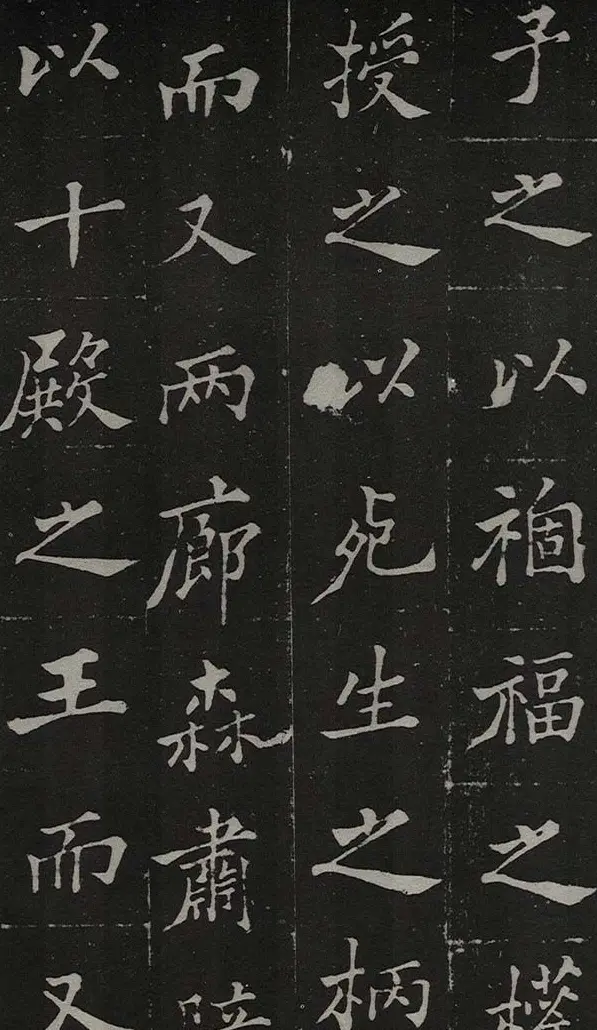 子之以祸福之權
授之以死生之柄
而又兩廊森肅
以十殿之王而又